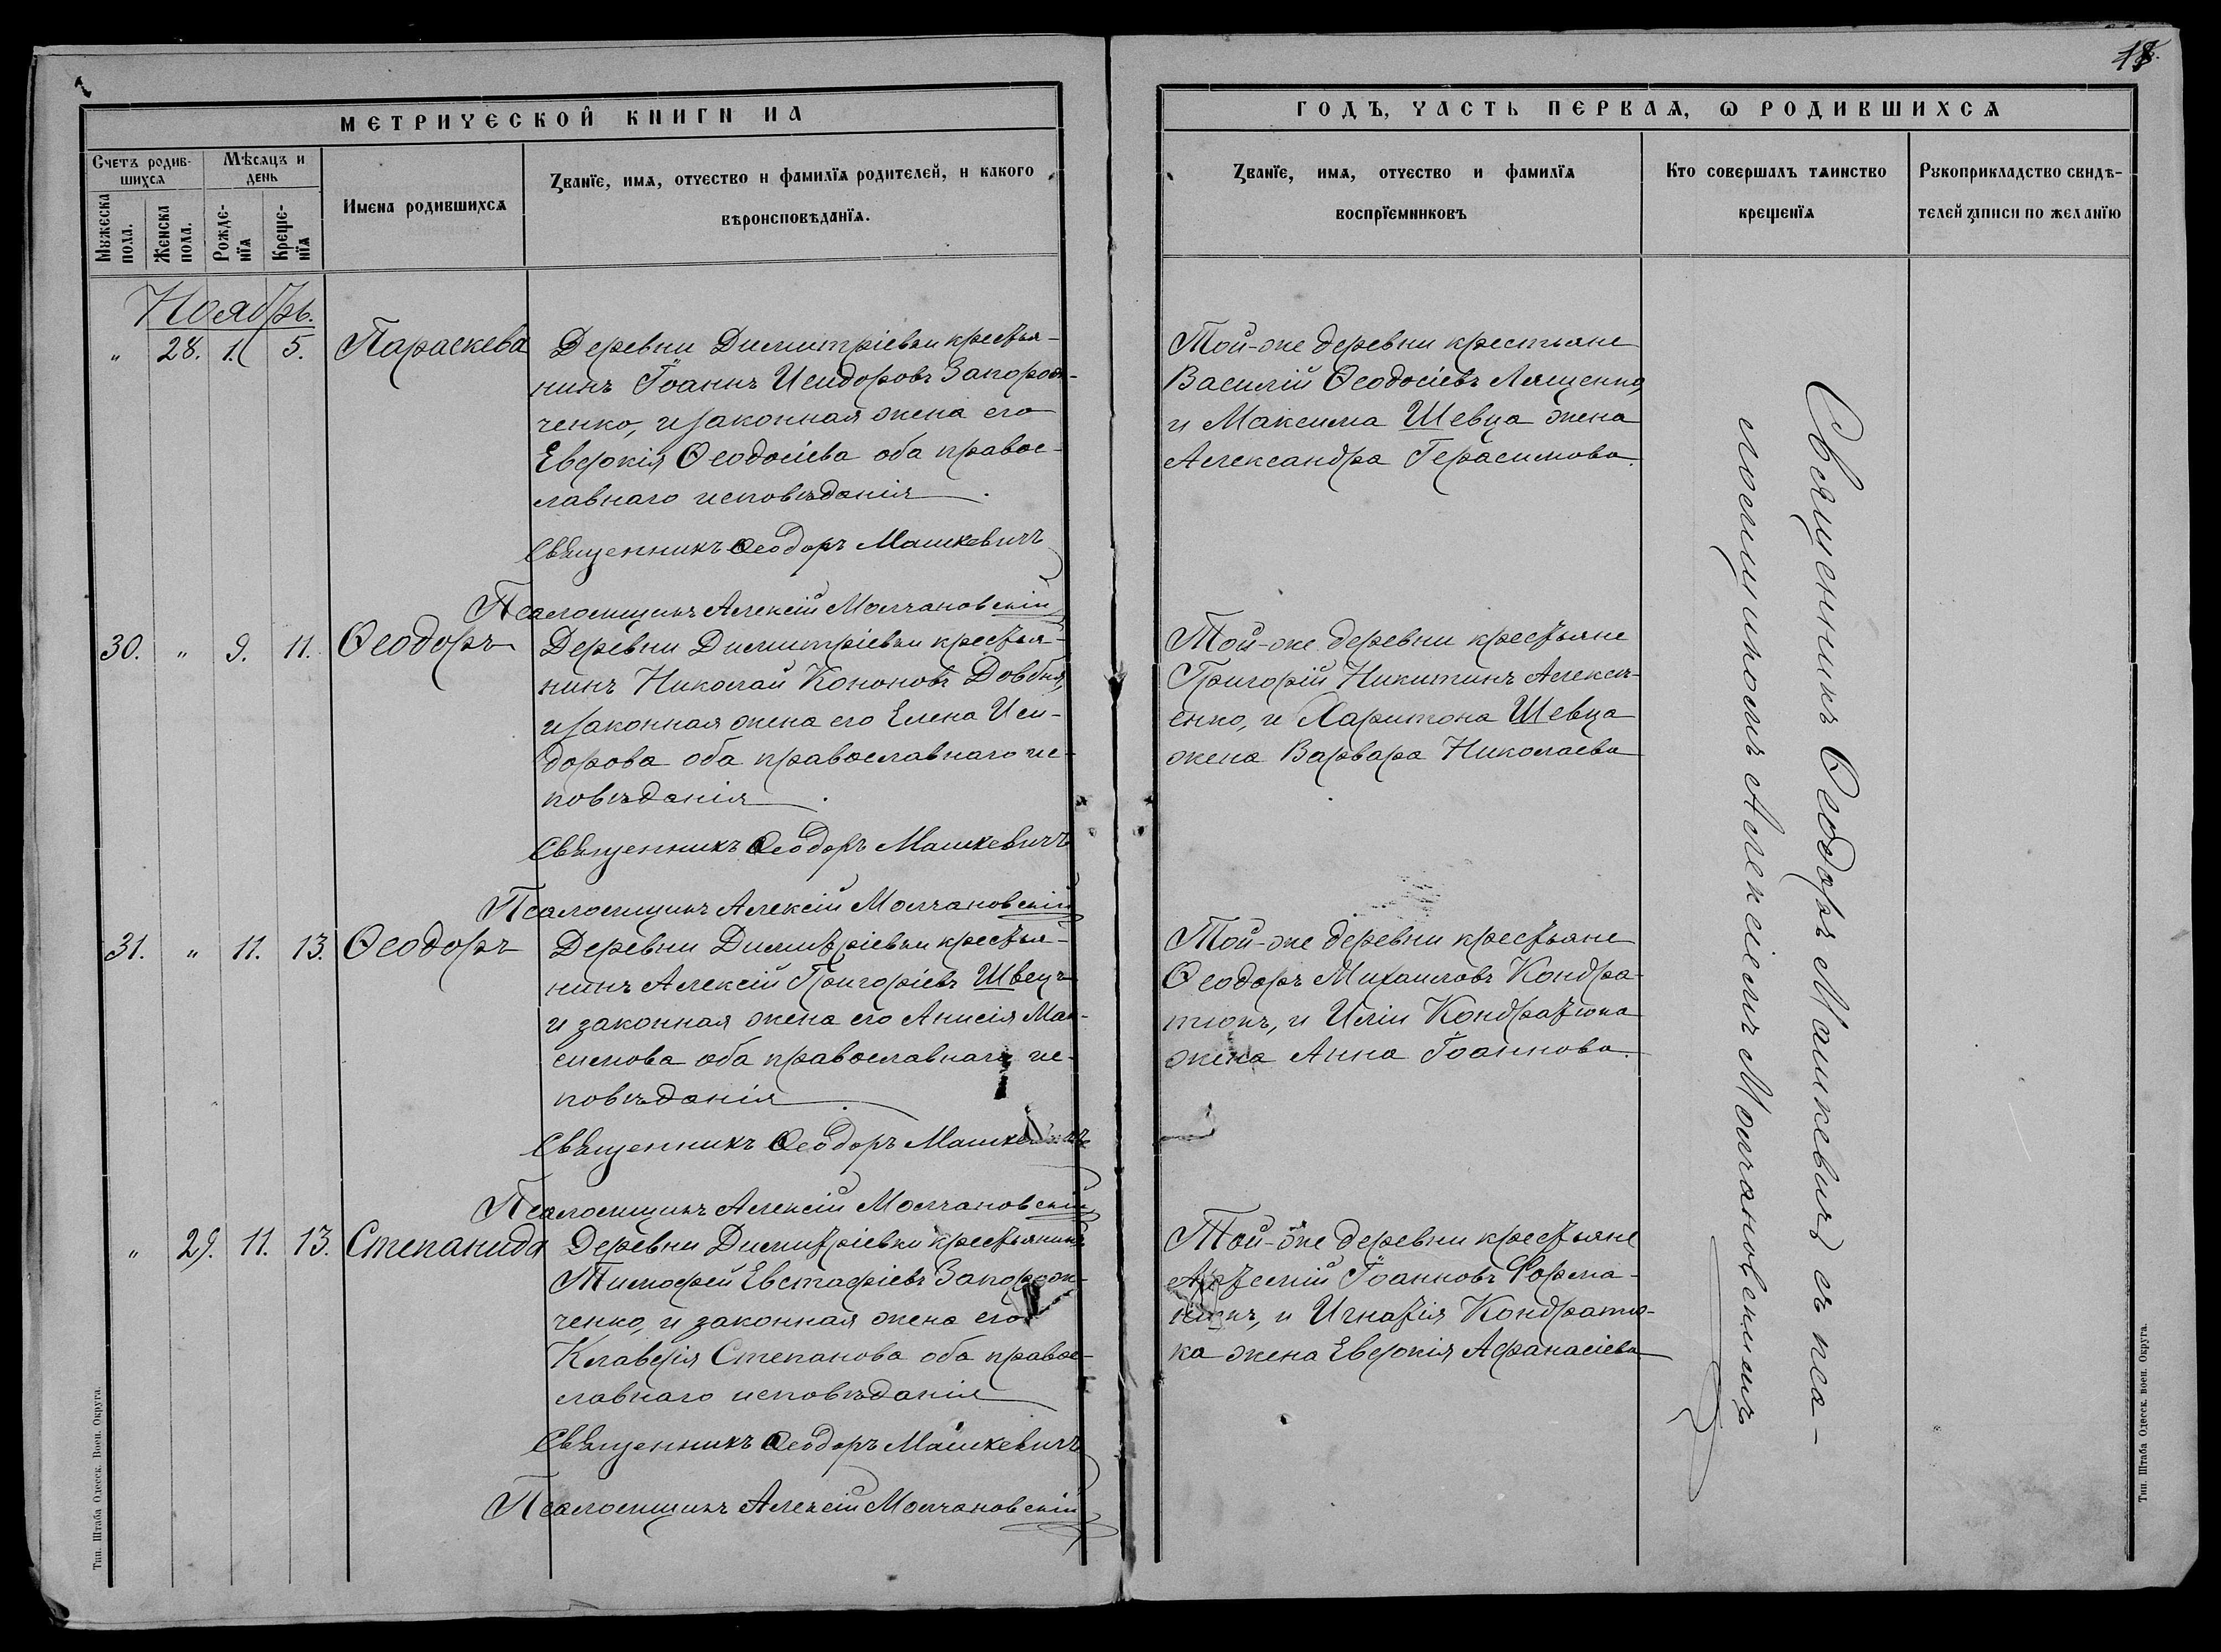 18.
МЕТРИЧЕСКОЙ КНИГИ НА
ГОДЪ, ЧАСТЬ ПЕРВАЯ, Ѡ РОДИВШИХСЯ
Счетъ родив-
шихся
Мѣсяцъ и
день
Мужеска
пола.
Женска
пола.
Рожде-
нїя
Креще-
нїя
Имена родившихся
Званїе, имя, отчество и фамилїя родителей, и какого
вѣроисповѣданїя.
Званїе, имя, отчество и фамилїя
воспрїемниковъ
Кто совершалъ таинство
крещенїя
Рукоприкладство свидѣ-
телей записи по желанїю
Ноябрь.
" 28. 1. 5. Параскева
Деревни Димитріевки крестья-
нинъ Іоаннъ Исидоровъ Запорож-
ченко, и законная жена его
Евдокія Ѳеодосіева оба правос-
лавнаго исповѣданія.
Священникъ Ѳеодоръ Машкевичъ
Псаломщикъ Алексій Молчановскій
Той-же деревни крестьяне
Василій Ѳеодосіевъ Лященко,
и Максима Шевца жена
Александра Герасимова.
30. " 9. 11. Ѳеодоръ
Деревни Димитріевки крестья-
нинъ Николай Кононовъ Довбня,
и законная жена его Елена Иси-
дорова оба православнаго ис-
повѣданія.
Священникъ Ѳеодоръ Машкевичъ
Псаломщикъ Алексій Молчановскій
Той-же деревни крестьяне
Григорій Никитинъ Алексѣ-
енко, и Харитона Шевца
жена Варвара Николаева
31. " 11. 13. Ѳеодоръ
Деревни Димитріевки крестья-
нинъ Алексій Григоріевъ Швецъ
и законная жена его Анисія Мак-
симова оба православнаго ис-
повѣданія.
Священникъ Ѳеодоръ Машкевичъ
Псаломщикъ Алексій Молчановскій
Той-же деревни крестьяне
Ѳеодоръ Михаиловъ Кондра-
тюкъ, и Иліи Кондратюка
жена Анна Іоаннова.
" 29. 11. 13. Степанида
Деревни Димитріевки крестьянинъ
Тимофей Евстафіевъ Запорож-
ченко, и законная жена его
Клавдія Степанова оба правос-
лавнаго исповѣданія
Священникъ Ѳеодоръ Машкевичъ
Псаломщикъ Алексій Молчановскій
Той-же деревни крестьяне
Артемій Іоанновъ Форма-
нюкъ, и Игнатія Кондратю-
ка жена Евдокія Афанасіева
Священникъ Ѳеодоръ Машкевичъ съ пса-
ломщикомъ Алексіемъ Молчановскимъ
Тип. Штаба Одесск. Воен. Округа.
Тип. Штаба Одесск. воен. Округа.